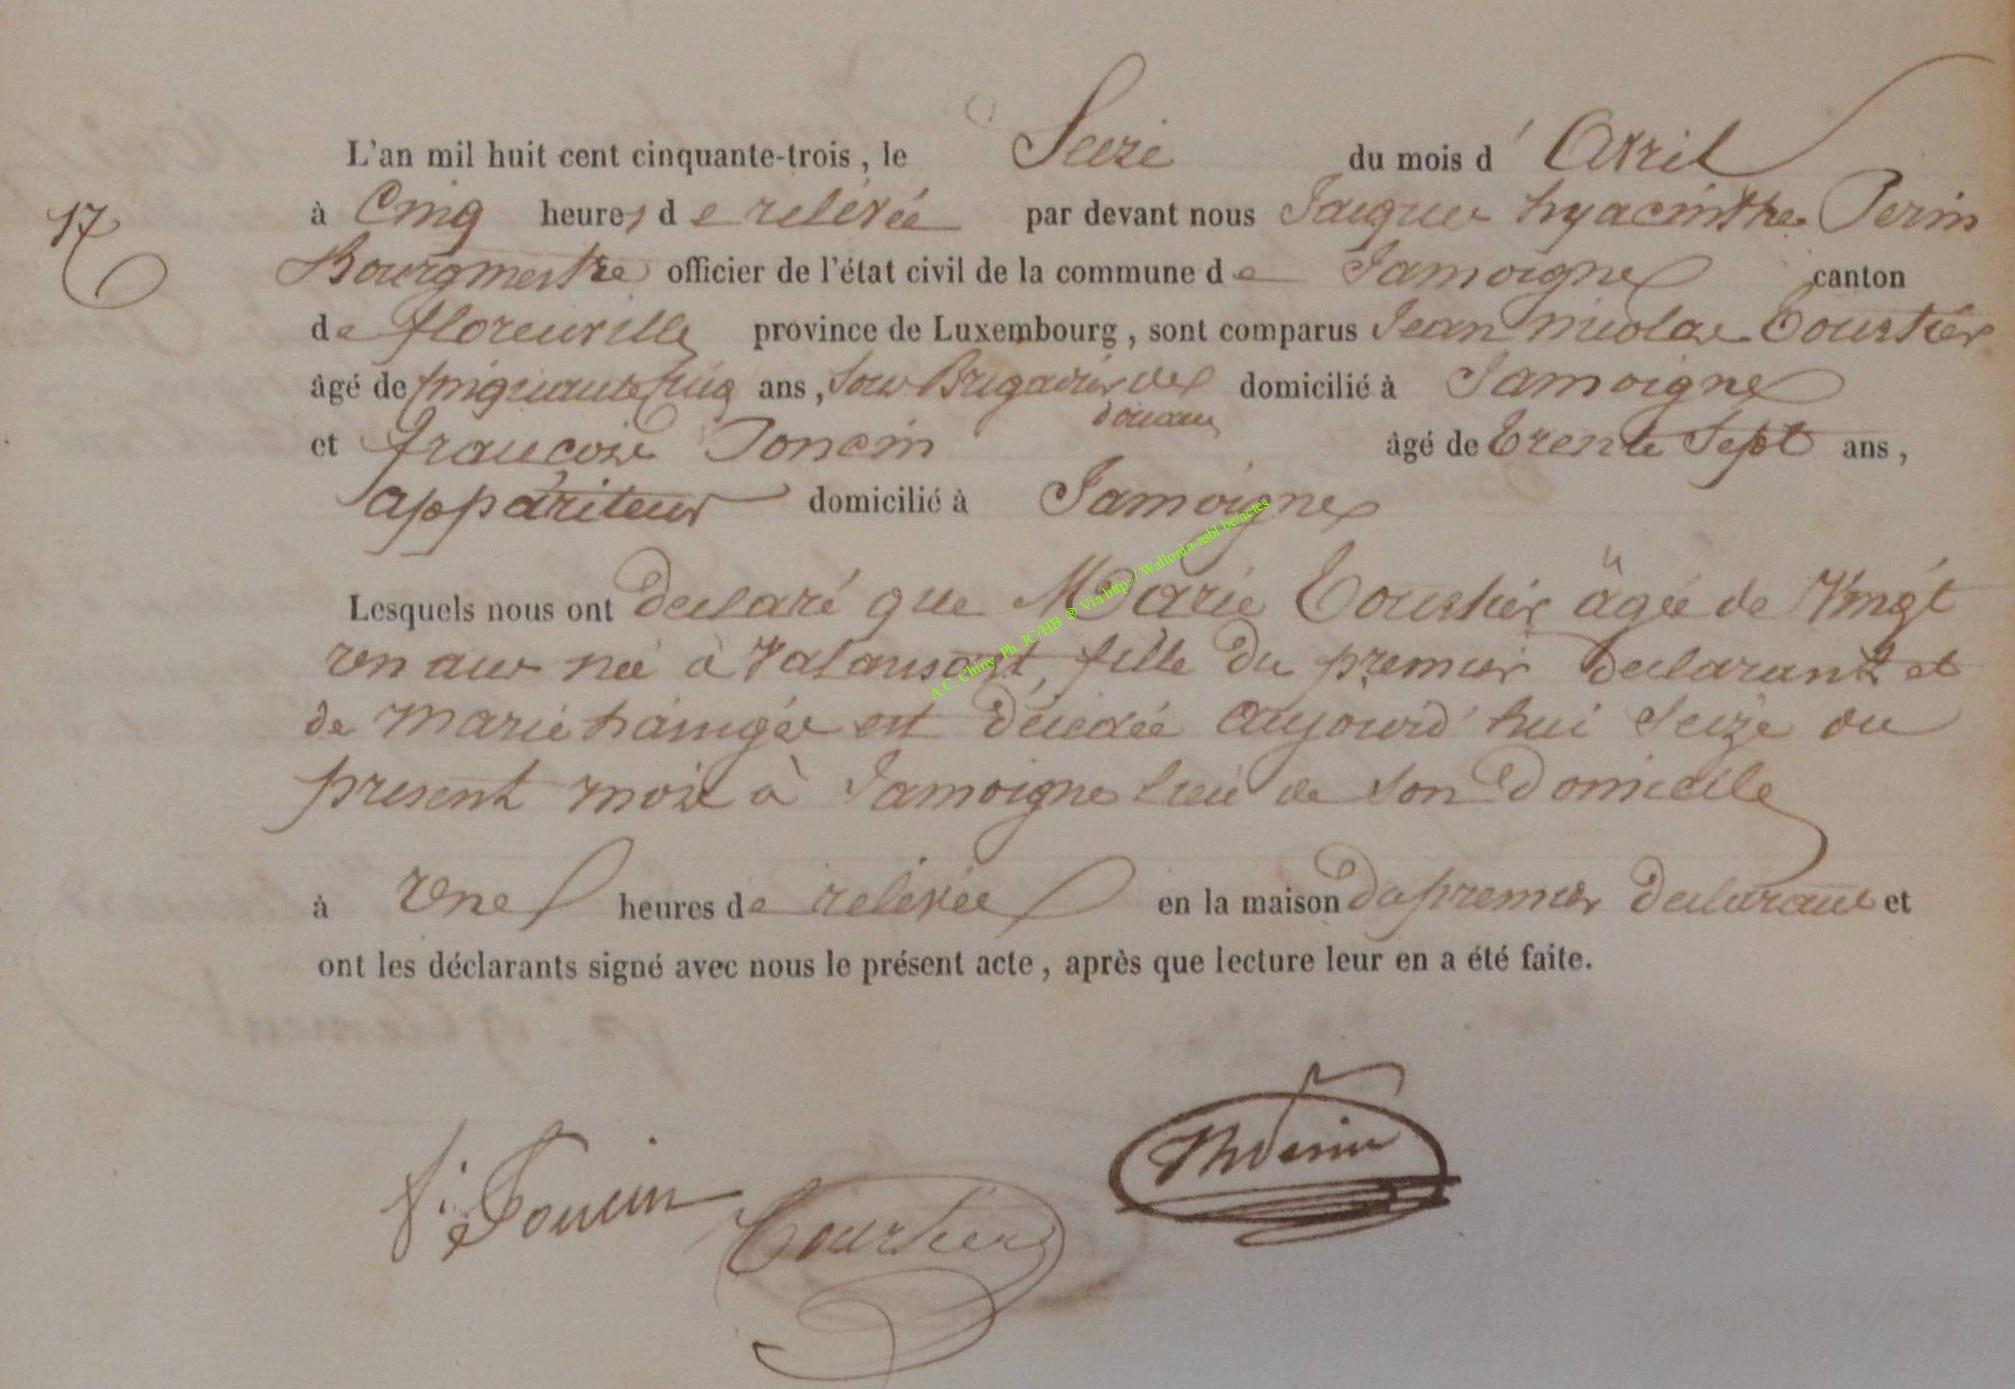 L'an mil huit cent cinquante-trois, le Seize du mois d' Avril
17
à Cinq heures de relevée par devant nous Jacques hyacinthe Perin
Bourgmestre officier de l'état civil de la commune de Jamoigne canton
de florenville province de Luxembourg, sont comparus Jean nicolas Courtier
âgé de cinquante cinq ans, Sous Brigadier des domicilié à Jamoigne
douanes
et françois Poncin âgé de trente Sept ans,
appariteur domicilié à Jamoigne
Lesquels nous ont declaré que Marie Courtier âgée de Vingt
un ans née à fille du premier declarant et
de marie est décédée aujourd'hui Seize du
présent mois à Jamoigne lieu de son Domicile
à une heures de relevée en la maison du premier declarant et
ont les déclarants signé avec nous le présent acte, après que lecture leur en a été faite.
f. Poncin Courtier
A.C. Chiny Ph JC/HB ® Via http://Wallonia-asbl.be/actes